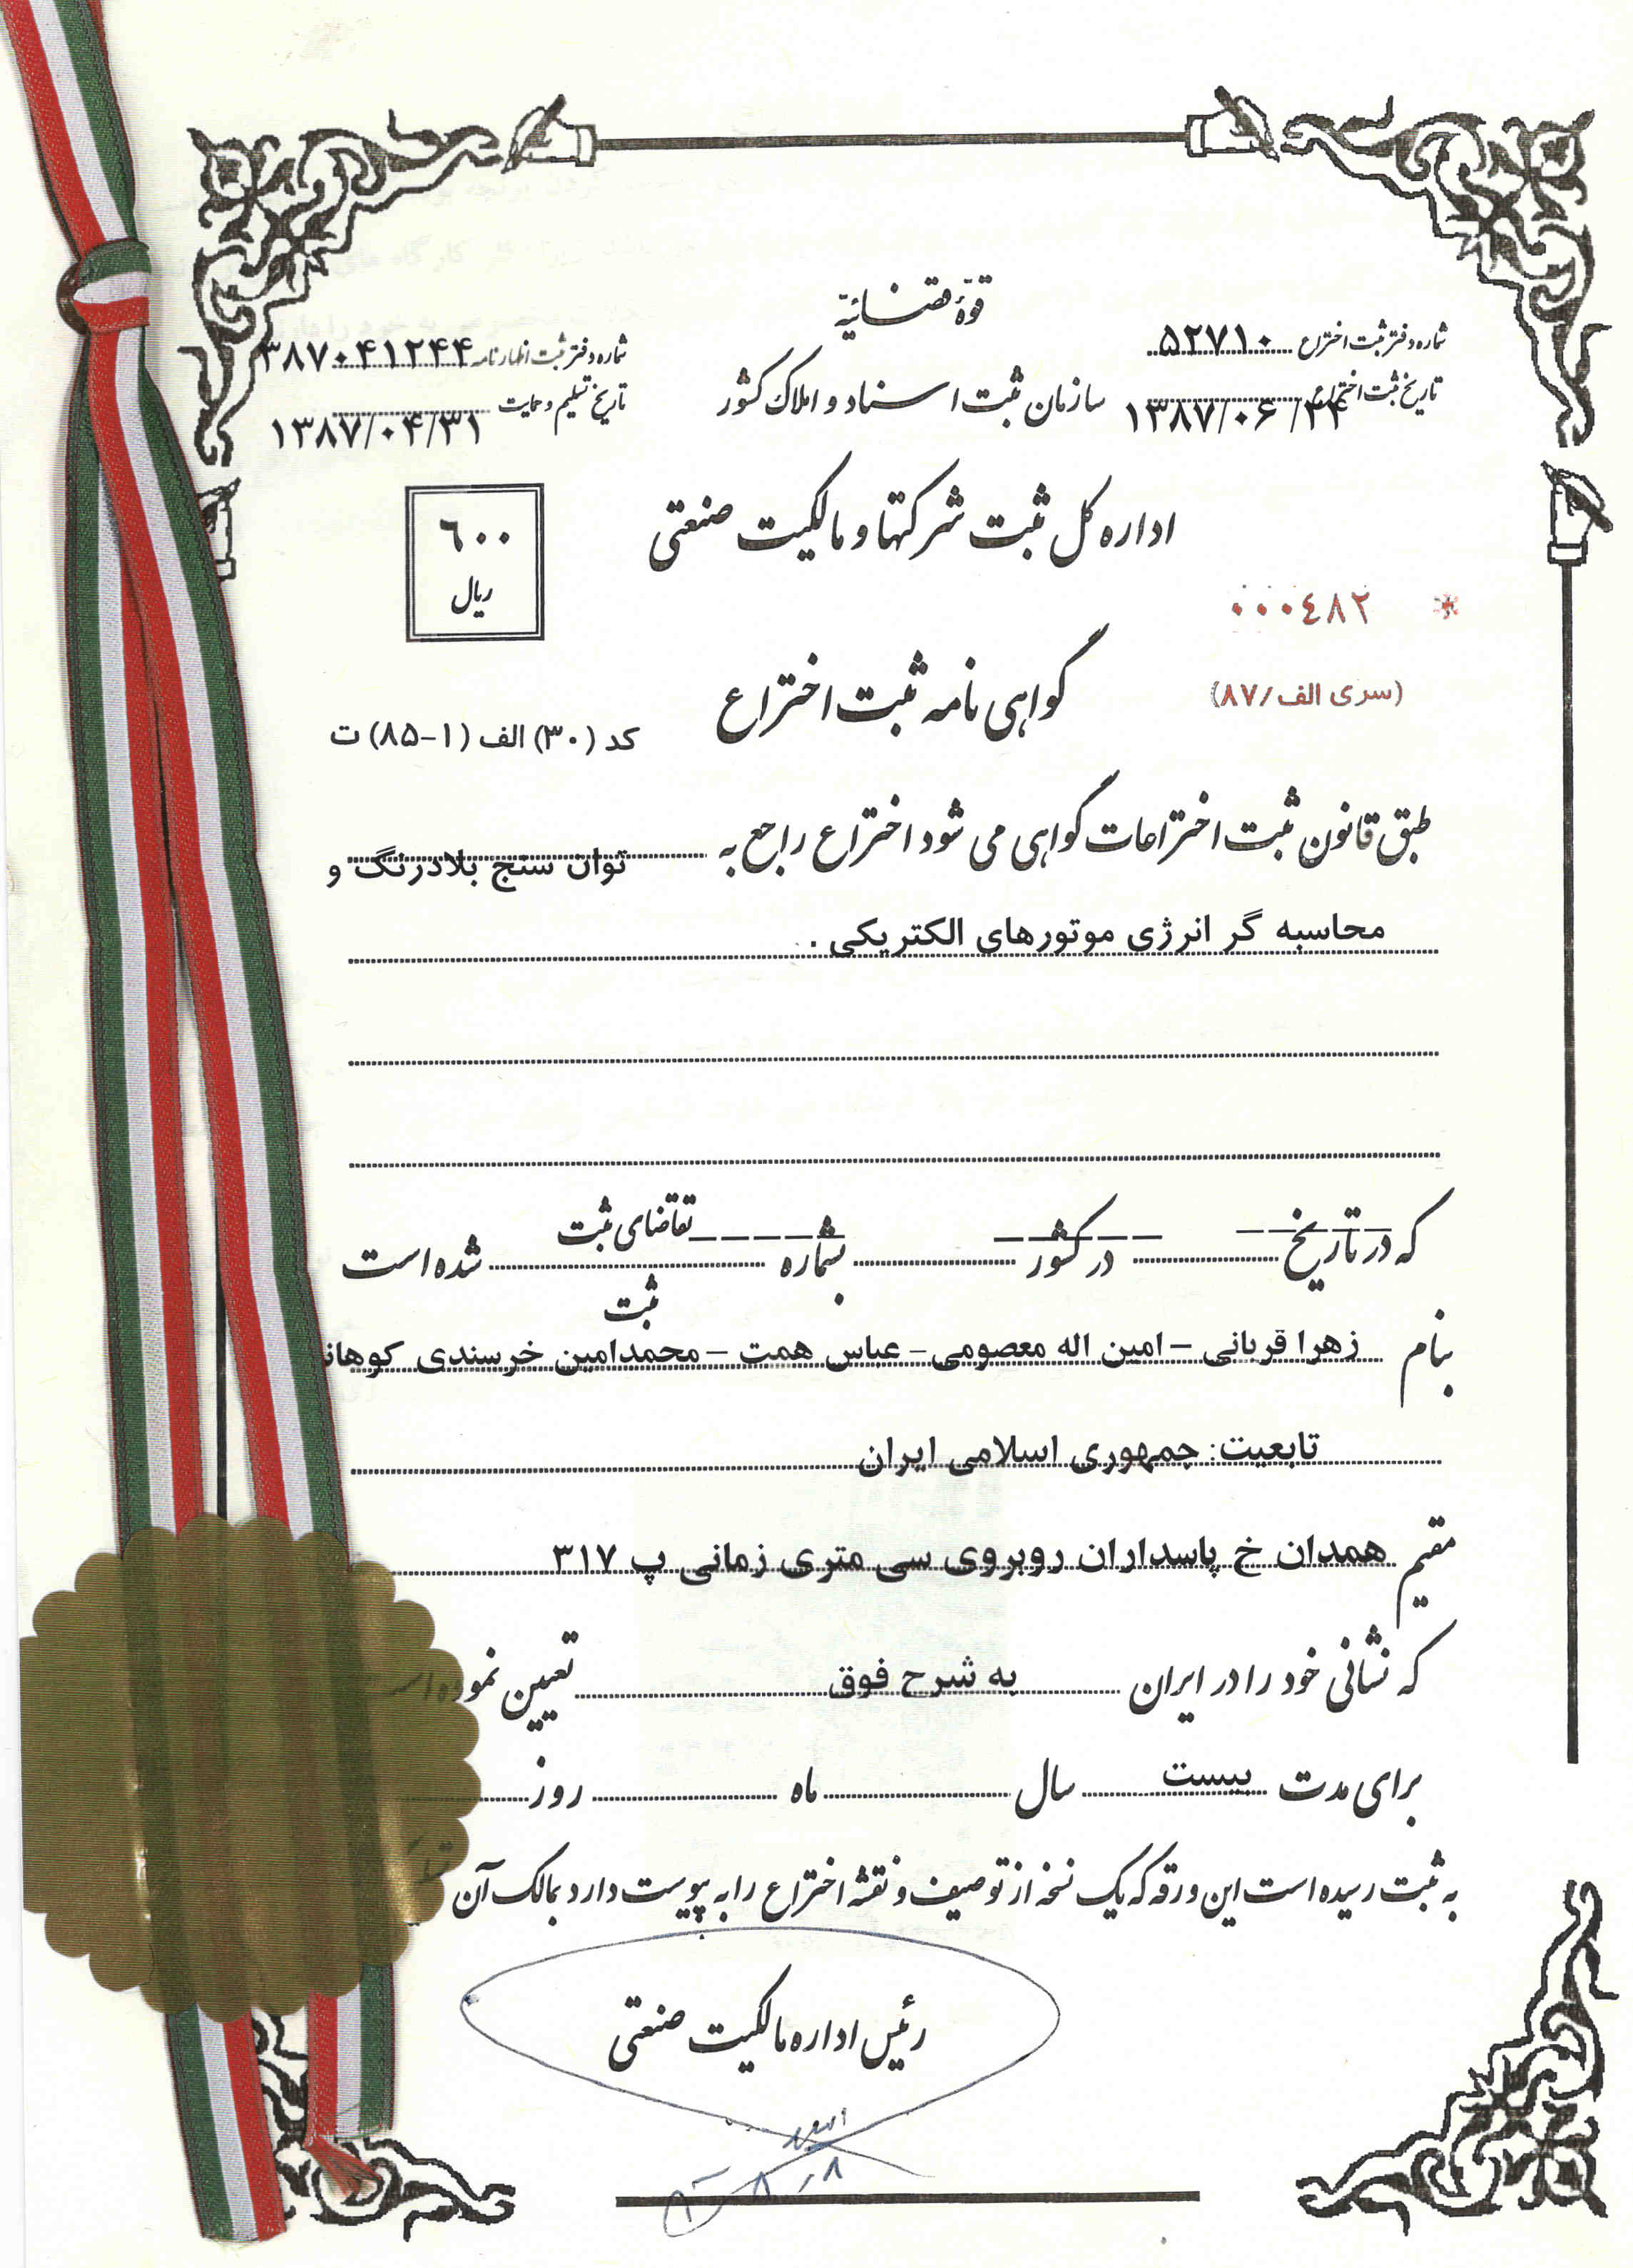 قوهٔ قضائیه
شماره دفتر ثبت اختراع ۵۲۷۱۰
شماره دفتر ثبت اظهارنامه ۳۸۷۰۴۱۲۴۴
سازمان ثبت اسناد و املاک کشور
تاریخ ثبت اختراع ۱۳۸۷/۰۶/۲۴
تاریخ تسلیم و حمایت ۱۳۸۷/۰۴/۳۱
اداره کل ثبت شرکتها و مالکیت صنعتی
۶۰۰
ریال
* ۰۰۰٤۸۲
(سری الف/۸۷)
گواهی نامه ثبت اختراع
کد (۳۰) الف (۱-۸۵) ت
طبق قانون ثبت اختراعات گواهی می شود اختراع راجع به توان سنج بلادرنگ و
محاسبه گر انرژی موتورهای الکتریکی .
که در تاریخ در کشور بشماره تقاضای ثبت شده است
ثبت
بنام زهرا قربانی – امین اله معصومی – عباس همت – محمدامین خرسندی
تابعیت: جمهوری اسلامی ایران
مقیم همدان خ پاسداران روبروی سی متری زمانی پ ۳۱۷
که نشانی خود را در ایران به شرح فوق تعیین نموده
برای مدت بیست سال ماه روز
به ثبت رسیده است این ورقه که یک نسخه از توصیف و نقشه اختراع را به پیوست دارد بمالک آن
رئیس اداره مالکیت صنعتی